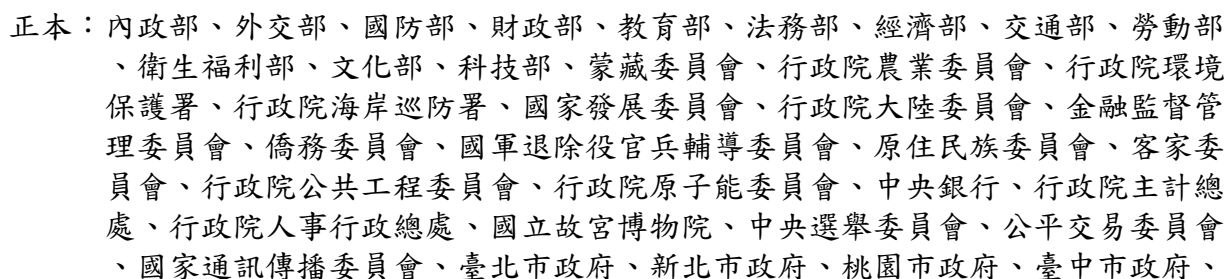 正本：內政部、外交部、國防部、財政部、教育部、法務部、經濟部、交通部、勞動部
、衛生福利部、文化部、科技部、蒙藏委員會、行政院農業委員會、行政院環境
保護署、行政院海岸巡防署、國家發展委員會、行政院大陸委員會、金融監督管
理委員會、僑務委員會、國軍退除役官兵輔導委員會、原住民族委員會、客家委
員會、行政院公共工程委員會、行政院原子能委員會、中央銀行、行政院主計總
處、行政院人事行政總處、國立故宮博物院、中央選舉委員會、公平交易委員會
、國家通訊傳播委員會、臺北市政府、新北市政府、桃園市政府、臺中市政府、